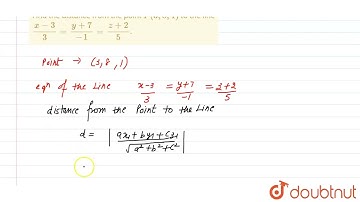 x-3/3 = y+7/-1 = z+2/5.
Point → (3,8,1)
eqn of the Line x-3/3 = y+7/-1 = z+2/5
distance from the Point to the Line
d = | ax1 + by1 + cz1 / √a²+b²+c² |
doubtnut